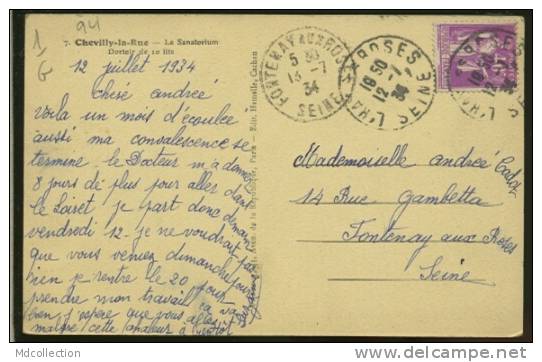 94
1/G
7. Chevilly-la-Rue — Le Sanatorium
Dortoir de 10 lits
12 juillet 1934
Chère andrée
Voila un mois d'écoulée
aussi ma convalescence se
termine le Docteur m'a donné
8 jours de plus pour aller dans
le Loiret je part donc demain
vendredi 12. je ne voudrait pas
que vous veniez dimanche pour
rien je rentre le 20 pour
prendre mon travail ca va
bien j'espère que vous allez
malgré cette chaleur à
Mademoiselle andrée
14 Rue Gambetta
Fontenay aux Roses
Seine
FONTENAY AUX ROSES
5 30
13 -7
34
SEINE
L'HAY-LES-ROSES
18 50
12 -7
34
SEINE
Mdcollection
http://www.delcampe.net